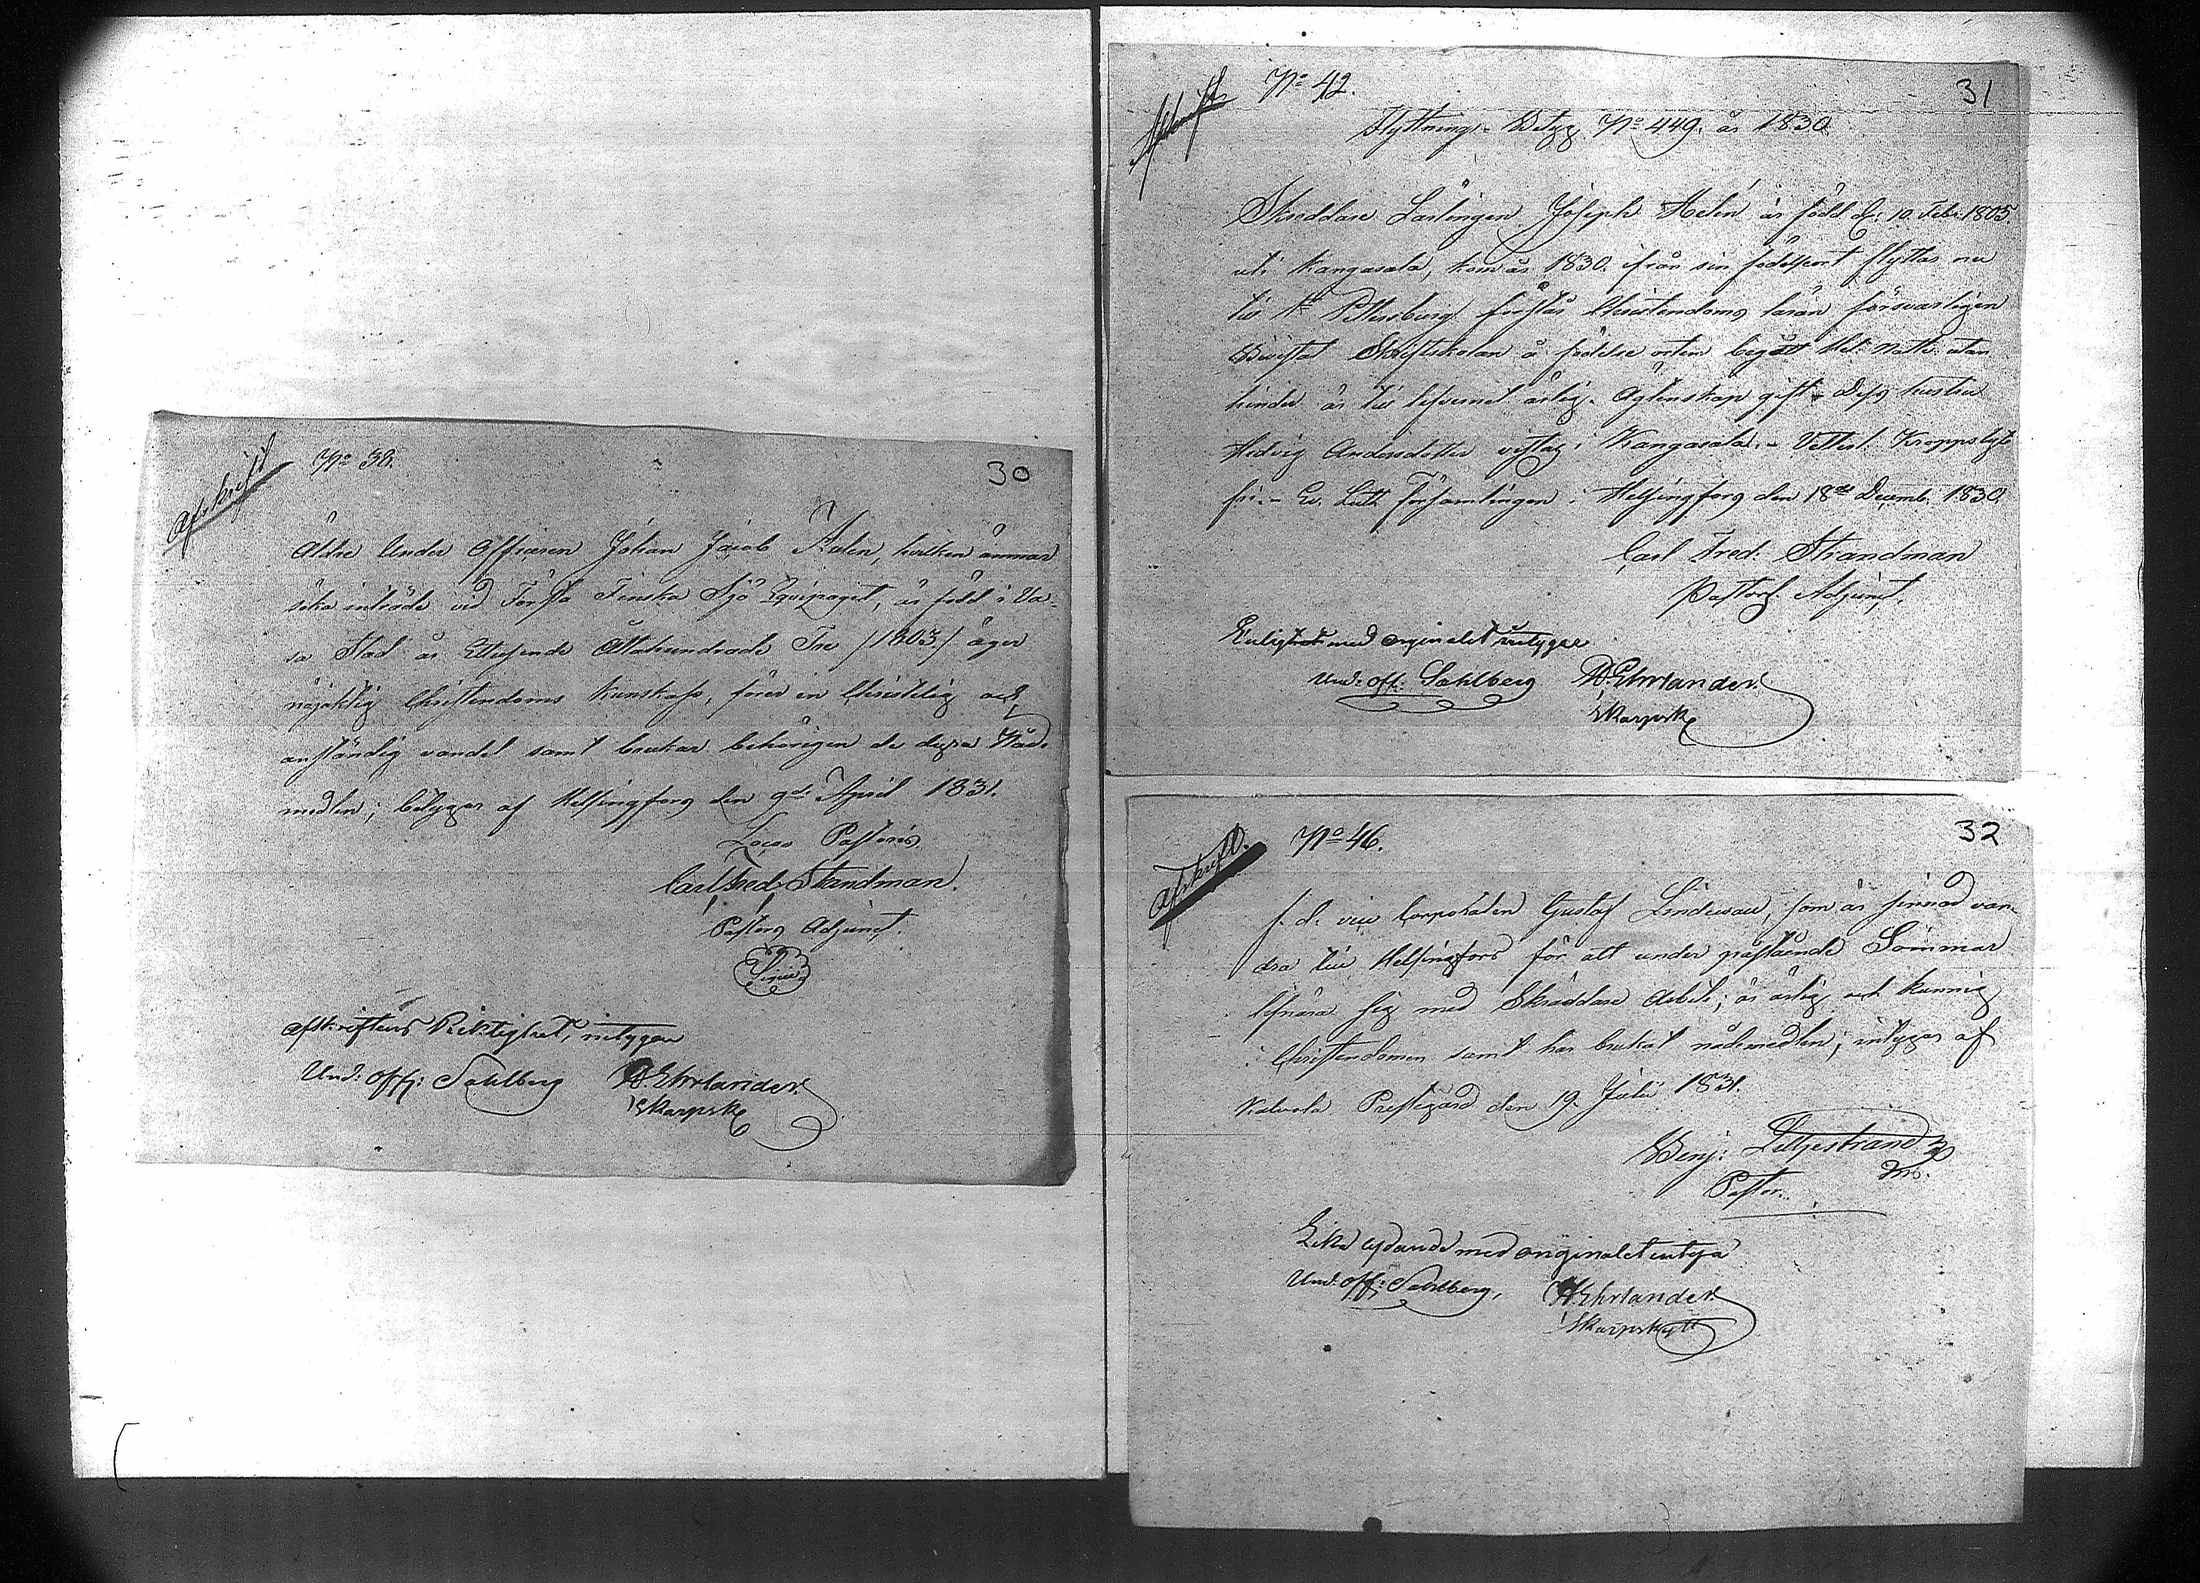 Afskrift
No 38.
30
Äldre Under Officeren Johan Jacob Åhlen, hvilken ämnar
söka inträde vid Första Finska Sjö Equipaget, är född i Va-
sa Stad år Ettusende Åttahundrade Tre /1803./ äger
nöjaktig Christendoms kunskap, förer en Christelig och
anständig vandel samt brukar behörigen de dyra Nåde
medlen; betygas af Helsingfors den 9de April 1831.
Loco Pastoris
Carl Fred. Strandman.
Pastors Adjunct.
Afskriftens Riktighet, intygar
Und: off: Sahlberg A. Ehrlander.
Skarpsk
Afskrift
No 42.
31
Flyttnings-Betyg No 449. år 1830.
Skreddare Lärlingen Joseph Helén är född d. 10. Feb: 1805.
uti Kangasala, kom år 1830. ifrån sin födelseort flyttar nu
till St Petersburg förstår Christendoms läran försvarligen
Bevistat Skriftskolan å födelse orten begått H: Nattv: utan
hinder är till lefvernet ärlig. Ägtenskap gift. Dess hustru
Hedvig Andersdotter vistas i Kangasala. Kroppslyte
fri. Ev. Luth. Församlingen i Helsingfors den 18de Decemb. 1830.
Carl Fred: Strandman
Pastors Adjunct.
Enlighet med orginalet intygar
Und: off: Sahlberg A. Ehrlander.
Skarpsk
Afskrift.
No 46.
32
f. d. vice Corporalen Gustaf, som är sinnad van-
dra till Helsingfors för att under påstående Sommar
lifnära sig med Skräddare Arbete; är ärlig och kunnig
i Christendomen samt har brukat nådemedlen; intygar af
Kalvola Prestegård den 19. Julii 1831.
Benj: Liljestrand
Pastor.
Lika lydande med originalet intyga
Und: off: Sahlberg, A. Ehrlander.
Skarpskytt